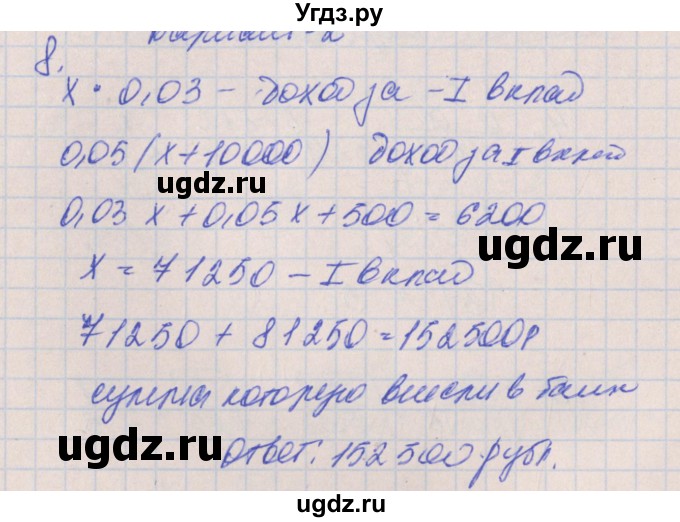 Угдз.ру
Вариант-2
8.
x · 0,03 - доход за - I вклад
0,05 (x + 10000) доход за I вклад
ugdz.ru ugdz.ru
0,03 x + 0,05 x + 500 = 6200
x = 71250 - I вклад
71250 + 81250 = 152500р
сумма которую внесли в банк
ugdz.ru ugdz.ru
ответ: 152500 рубл.
ugdz.ru